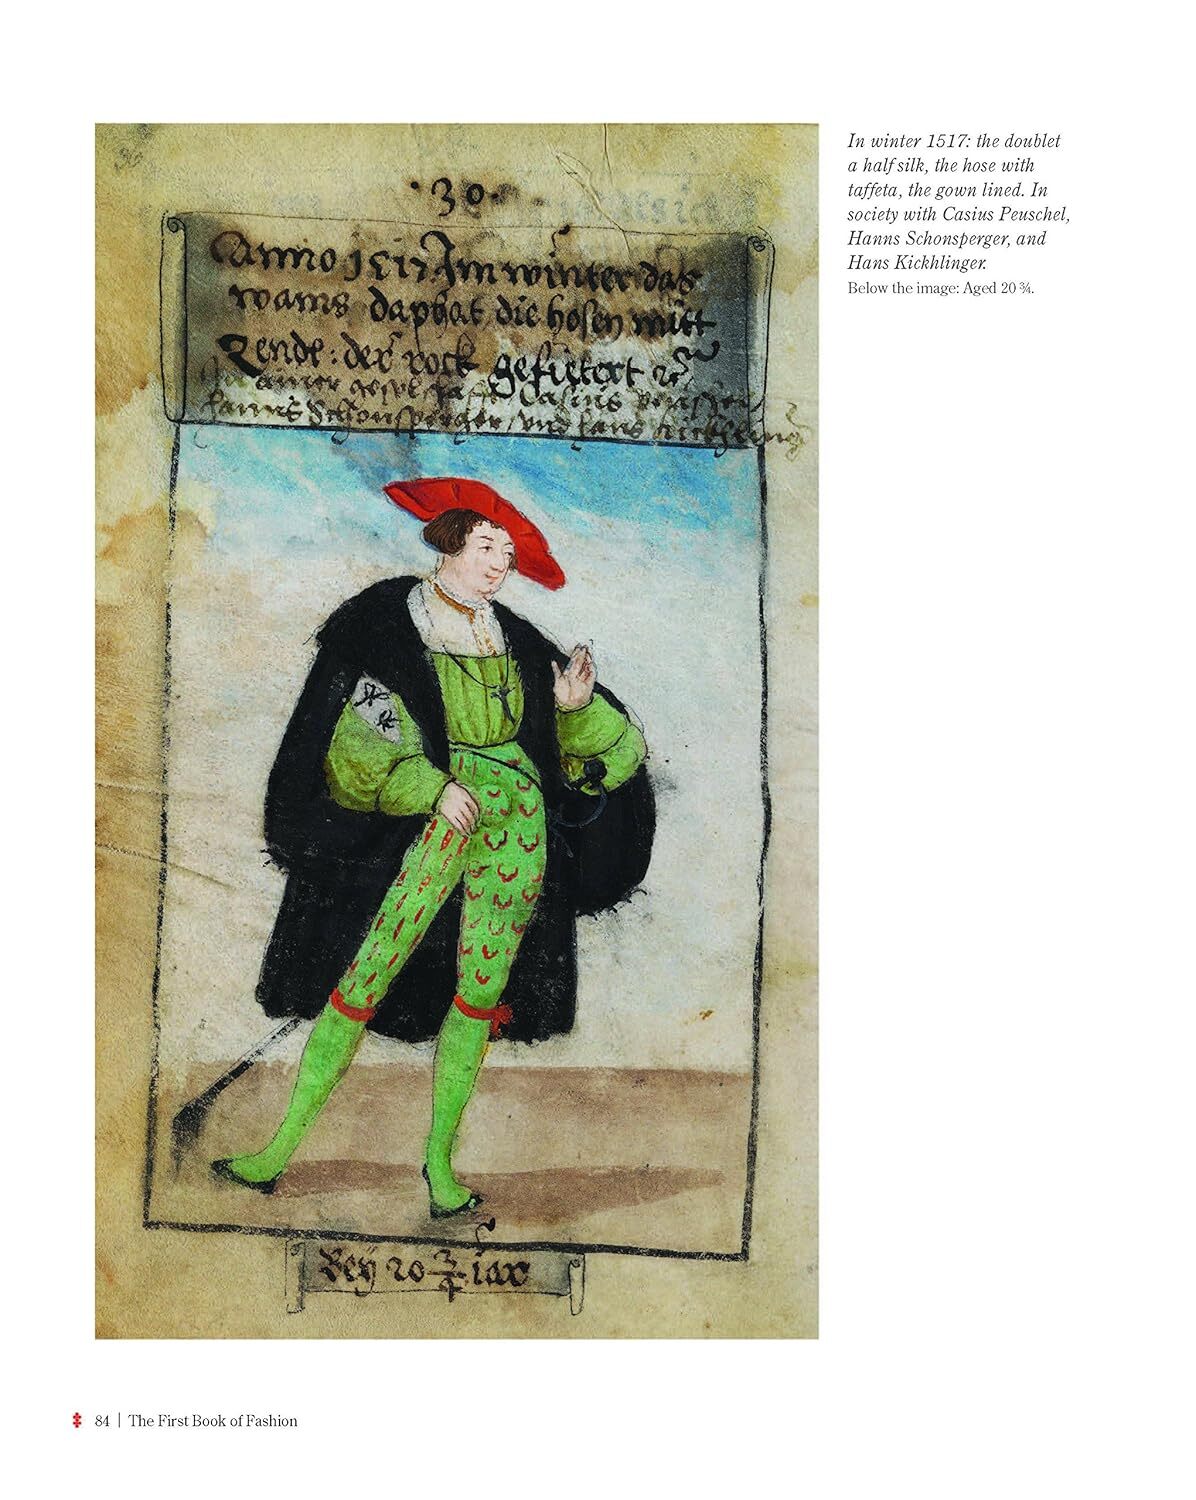 ·30·
Anno 1517 Im winter das
wams daphat die hosen mitt
Zendl: der rock gefietert
In ainer gesel
hanns Schonsperger, und hans
Beÿ 20 3/4 iar
In winter 1517: the doublet
a half silk, the hose with
taffeta, the gown lined. In
society with Casius Peuschel,
Hanns Schonsperger, and
Hans Kickhlinger.
Below the image: Aged 20 ¾.
84 | The First Book of Fashion